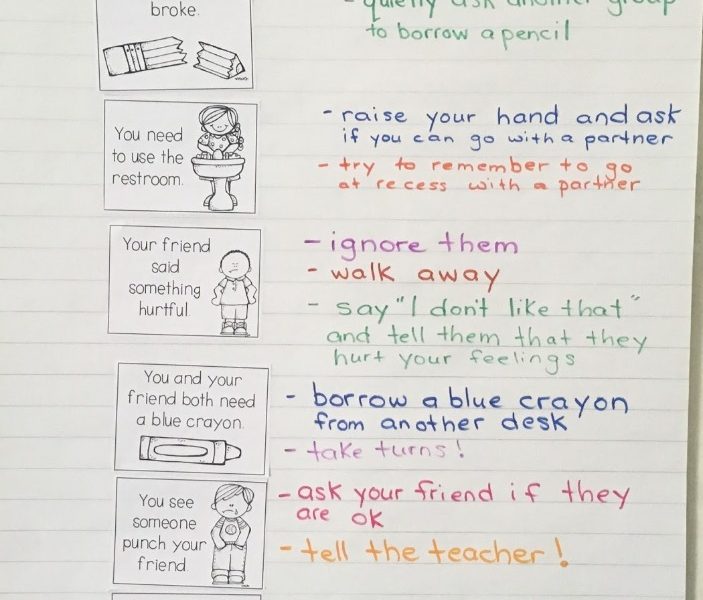 broke.
- quietly ask another group
to borrow a pencil
You need
to use the
restroom.
- raise your hand and ask
if you can go with a partner
- try to remember to go
at recess with a partner
Your friend
said
something
hurtful.
- ignore them
- walk away
- say "I don't like that"
and tell them that they
hurt your feelings
You and your
friend both need
a blue crayon.
- borrow a blue crayon
from another desk
- take turns!
You see
someone
punch your
friend.
- ask your friend if they
are ok
- tell the teacher!